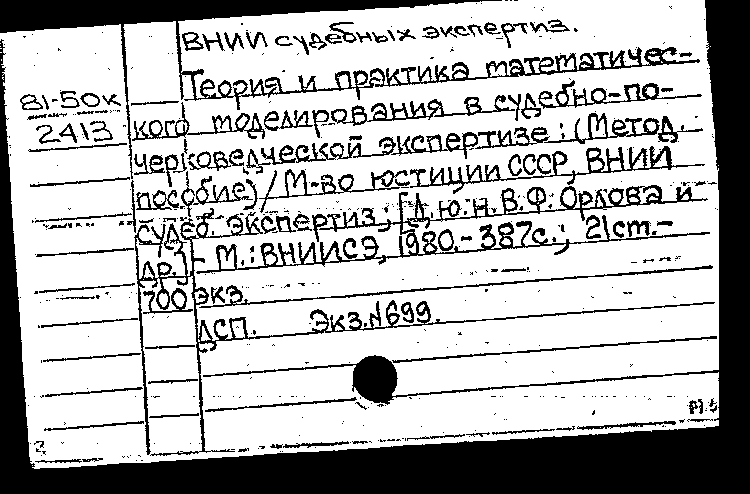 ВНИИ судебных экспертиз.
Теория и практика математичес-
81-50к
кого моделирования в судебно-по-
2413
черковедческой экспертизе: (Метод.
пособие) / М-во юстиции СССР, ВНИИ
судеб. экспертиз; [Д.ю.н. В.Ф. Орлова и
др.].- М.: ВНИИСЭ, 1980.- 387с.; 21ст.-
700 экз.
ДСП. Экз.N699.